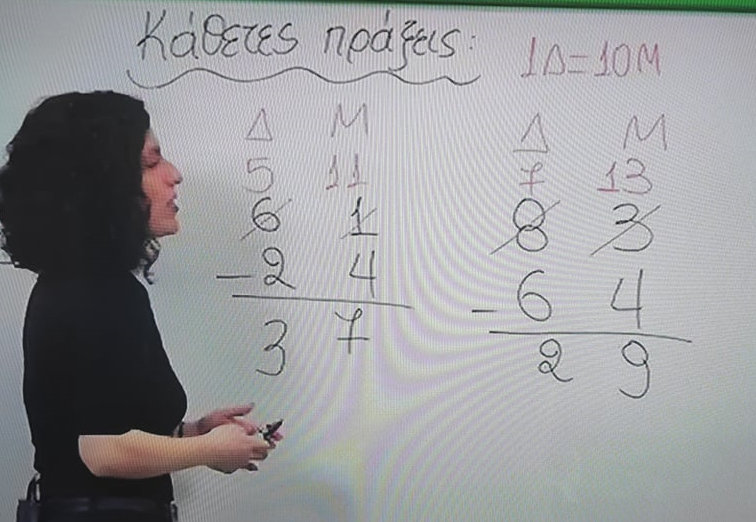 Κάθετες πράξεις:
1Δ=10Μ
Δ Μ
5 11
6 1
-2 4
3 7
Δ Μ
7 13
8 3
-6 4
2 9